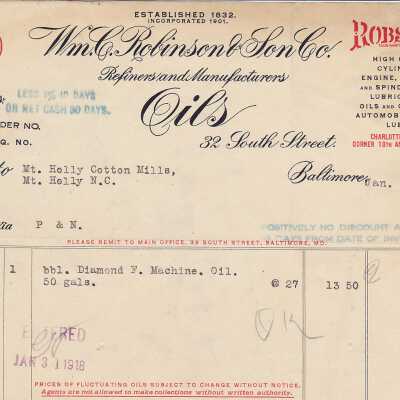 ESTABLISHED 1832.
INCORPORATED 1901.
Wm. C. Robinson & Son Co.
Refiners and Manufacturers
Oils
32 South Street.
ROBS
HIGH
CYLIN
ENGINE,
AND SPIND
LUBRIC
OILS AND
AUTOMOBIL
LUB
CHARLOTTE
CORNER 10TH AN
LESS 1% 10 DAYS
OR NET CASH 30 DAYS.
DER NO.
Q. NO.
to Mt. Holly Cotton Mills,
Mt. Holly N.C.
Baltimore, Jan.
Via P & N.
POSITIVELY NO DISCOUNT A
DAYS FROM DATE OF INV
PLEASE REMIT TO MAIN OFFICE, 32 SOUTH STREET, BALTIMORE, MD.
1 bbl. Diamond F. Machine. Oil.
50 gals. @ 27 13 50
OK
ENTERED
JAN 31 1918
PRICES OF FLUCTUATING OILS SUBJECT TO CHANGE WITHOUT NOTICE.
Agents are not allowed to make collections without written authority.